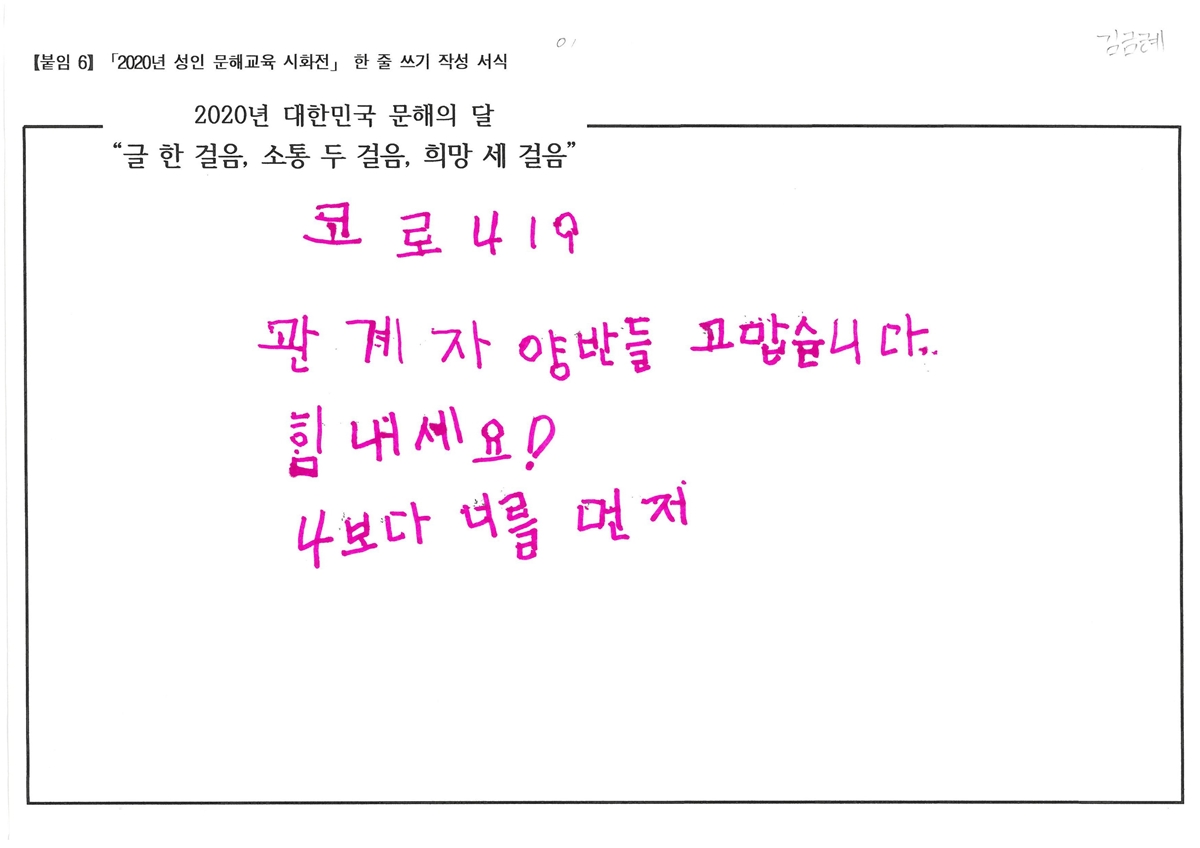 이
김금례
【붙임 6】 「2020년 성인 문해교육 시화전」 한 줄 쓰기 작성 서식
2020년 대한민국 문해의 달
“글 한 걸음, 소통 두 걸음, 희망 세 걸음”
코로나19
관계자 양반들 고맙습니다..
힘내세요!
나보다 너를 먼저